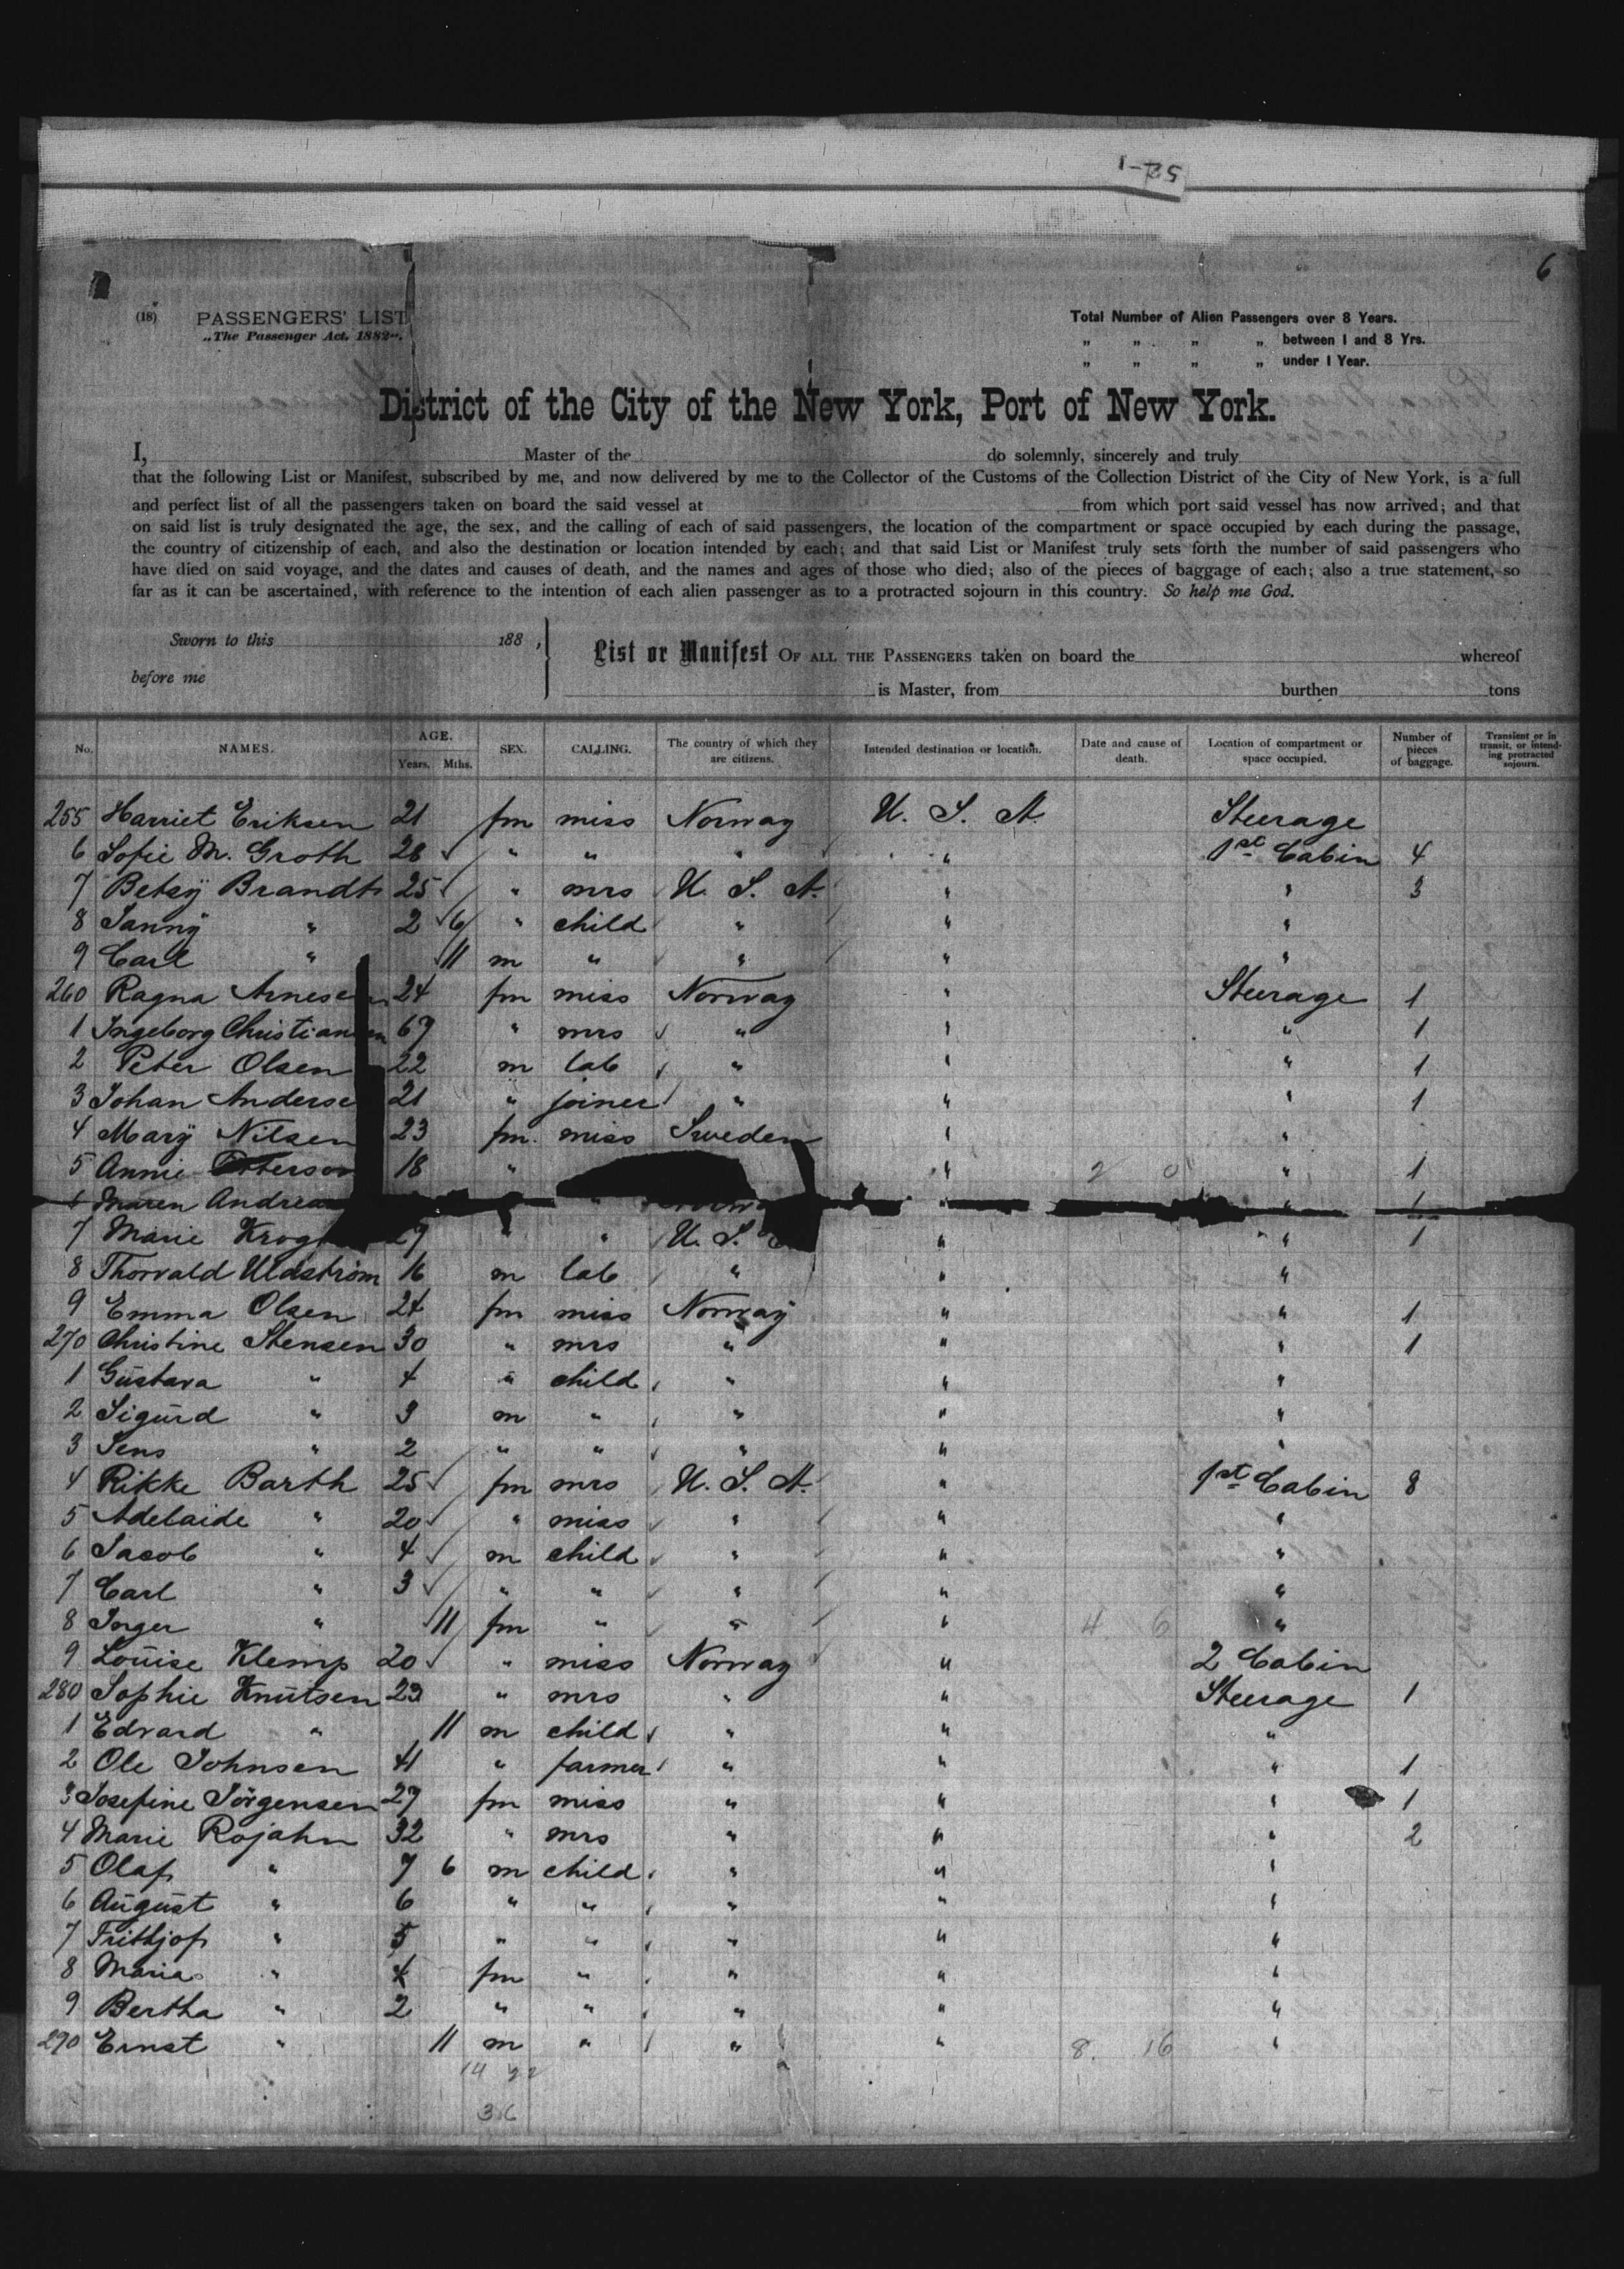 52-1
6
(18) PASSENGERS' LIST
„The Passenger Act, 1882".
Total Number of Alien Passengers over 8 Years.
„ „ „ „ between 1 and 8 Yrs.
„ „ „ „ under 1 Year.
District of the City of the New York, Port of New York.
I, Master of the do solemnly, sincerely and truly
that the following List or Manifest, subscribed by me, and now delivered by me to the Collector of the Customs of the Collection District of the City of New York, is a full
and perfect list of all the passengers taken on board the said vessel at from which port said vessel has now arrived; and that
on said list is truly designated the age, the sex, and the calling of each of said passengers, the location of the compartment or space occupied by each during the passage,
the country of citizenship of each, and also the destination or location intended by each; and that said List or Manifest truly sets forth the number of said passengers who
have died on said voyage, and the dates and causes of death, and the names and ages of those who died; also of the pieces of baggage of each; also a true statement, so
far as it can be ascertained, with reference to the intention of each alien passenger as to a protracted sojourn in this country. So help me God.
Sworn to this 188 ,
before me
List or Manifest OF ALL THE PASSENGERS taken on board the whereof
is Master, from burthen tons
No. NAMES. AGE. Years. Mths. SEX. CALLING. The country of which they are citizens. Intended destination or location. Date and cause of death. Location of compartment or space occupied. Number of pieces of baggage. Transient or in transit, or intending protracted sojourn.
255 Harriet Eriksen 21 fm miss Norway U. S. A. Steerage
6 Sofie M. Groth 28 " " " " 1st Cabin 4
7 Betsy Brandt 25 " mrs U. S. A. " " 3
8 Janny " 2 6 " child " " "
9 Carl " 11 m " " " "
260 Ragna Arnesen 24 fm miss Norway " Steerage 1
1 Ingeborg Christiansen 67 " mrs " " " 1
2 Peter Olsen 22 m lab " " " 1
3 Johan Anderse 21 " joiner " " " 1
4 Mary Nilsen 23 fm. miss Sweden " "
5 Annie Peterson 18 " " 2 0 " 1
6 Maren Andrea " " " 1
7 Marie Krog 27 " " U. S. " " 1
8 Thorvald Uldström 16 m lab " " "
9 Emma Olsen 24 fm miss Norway " " 1
270 Christine Stensen 30 " mrs " " " 1
1 Gustava " 4 " child " " "
2 Sigurd " 3 m " " " "
3 Jens " 2 " " " " "
4 Rikke Barth 25 fm mrs U. S. A. " 1st Cabin 8
5 Adelaide " 20 " miss " " "
6 Jacob " 4 m child " " "
7 Carl " 3 " " " " "
8 Inger " 11 fm " " " 4 6 "
9 Louise Klemp 20 " miss Norway " 2 Cabin
280 Sophie Knutsen 23 " mrs " " Steerage 1
1 Edvard " 11 m child " " "
2 Ole Johnsen 41 " farmer " " " 1
3 Josefine Jörgensen 27 fm miss " " " 1
4 Marie Rojahn 32 " mrs " " " 2
5 Olaf " 7 6 m child " " "
6 August " 6 " " " " "
7 Frithjof " 5 " " " " "
8 Maria " 4 fm " " " "
9 Bertha " 2 " " " " "
290 Ernst " 11 m " " " 8. 16 "
14 22
36